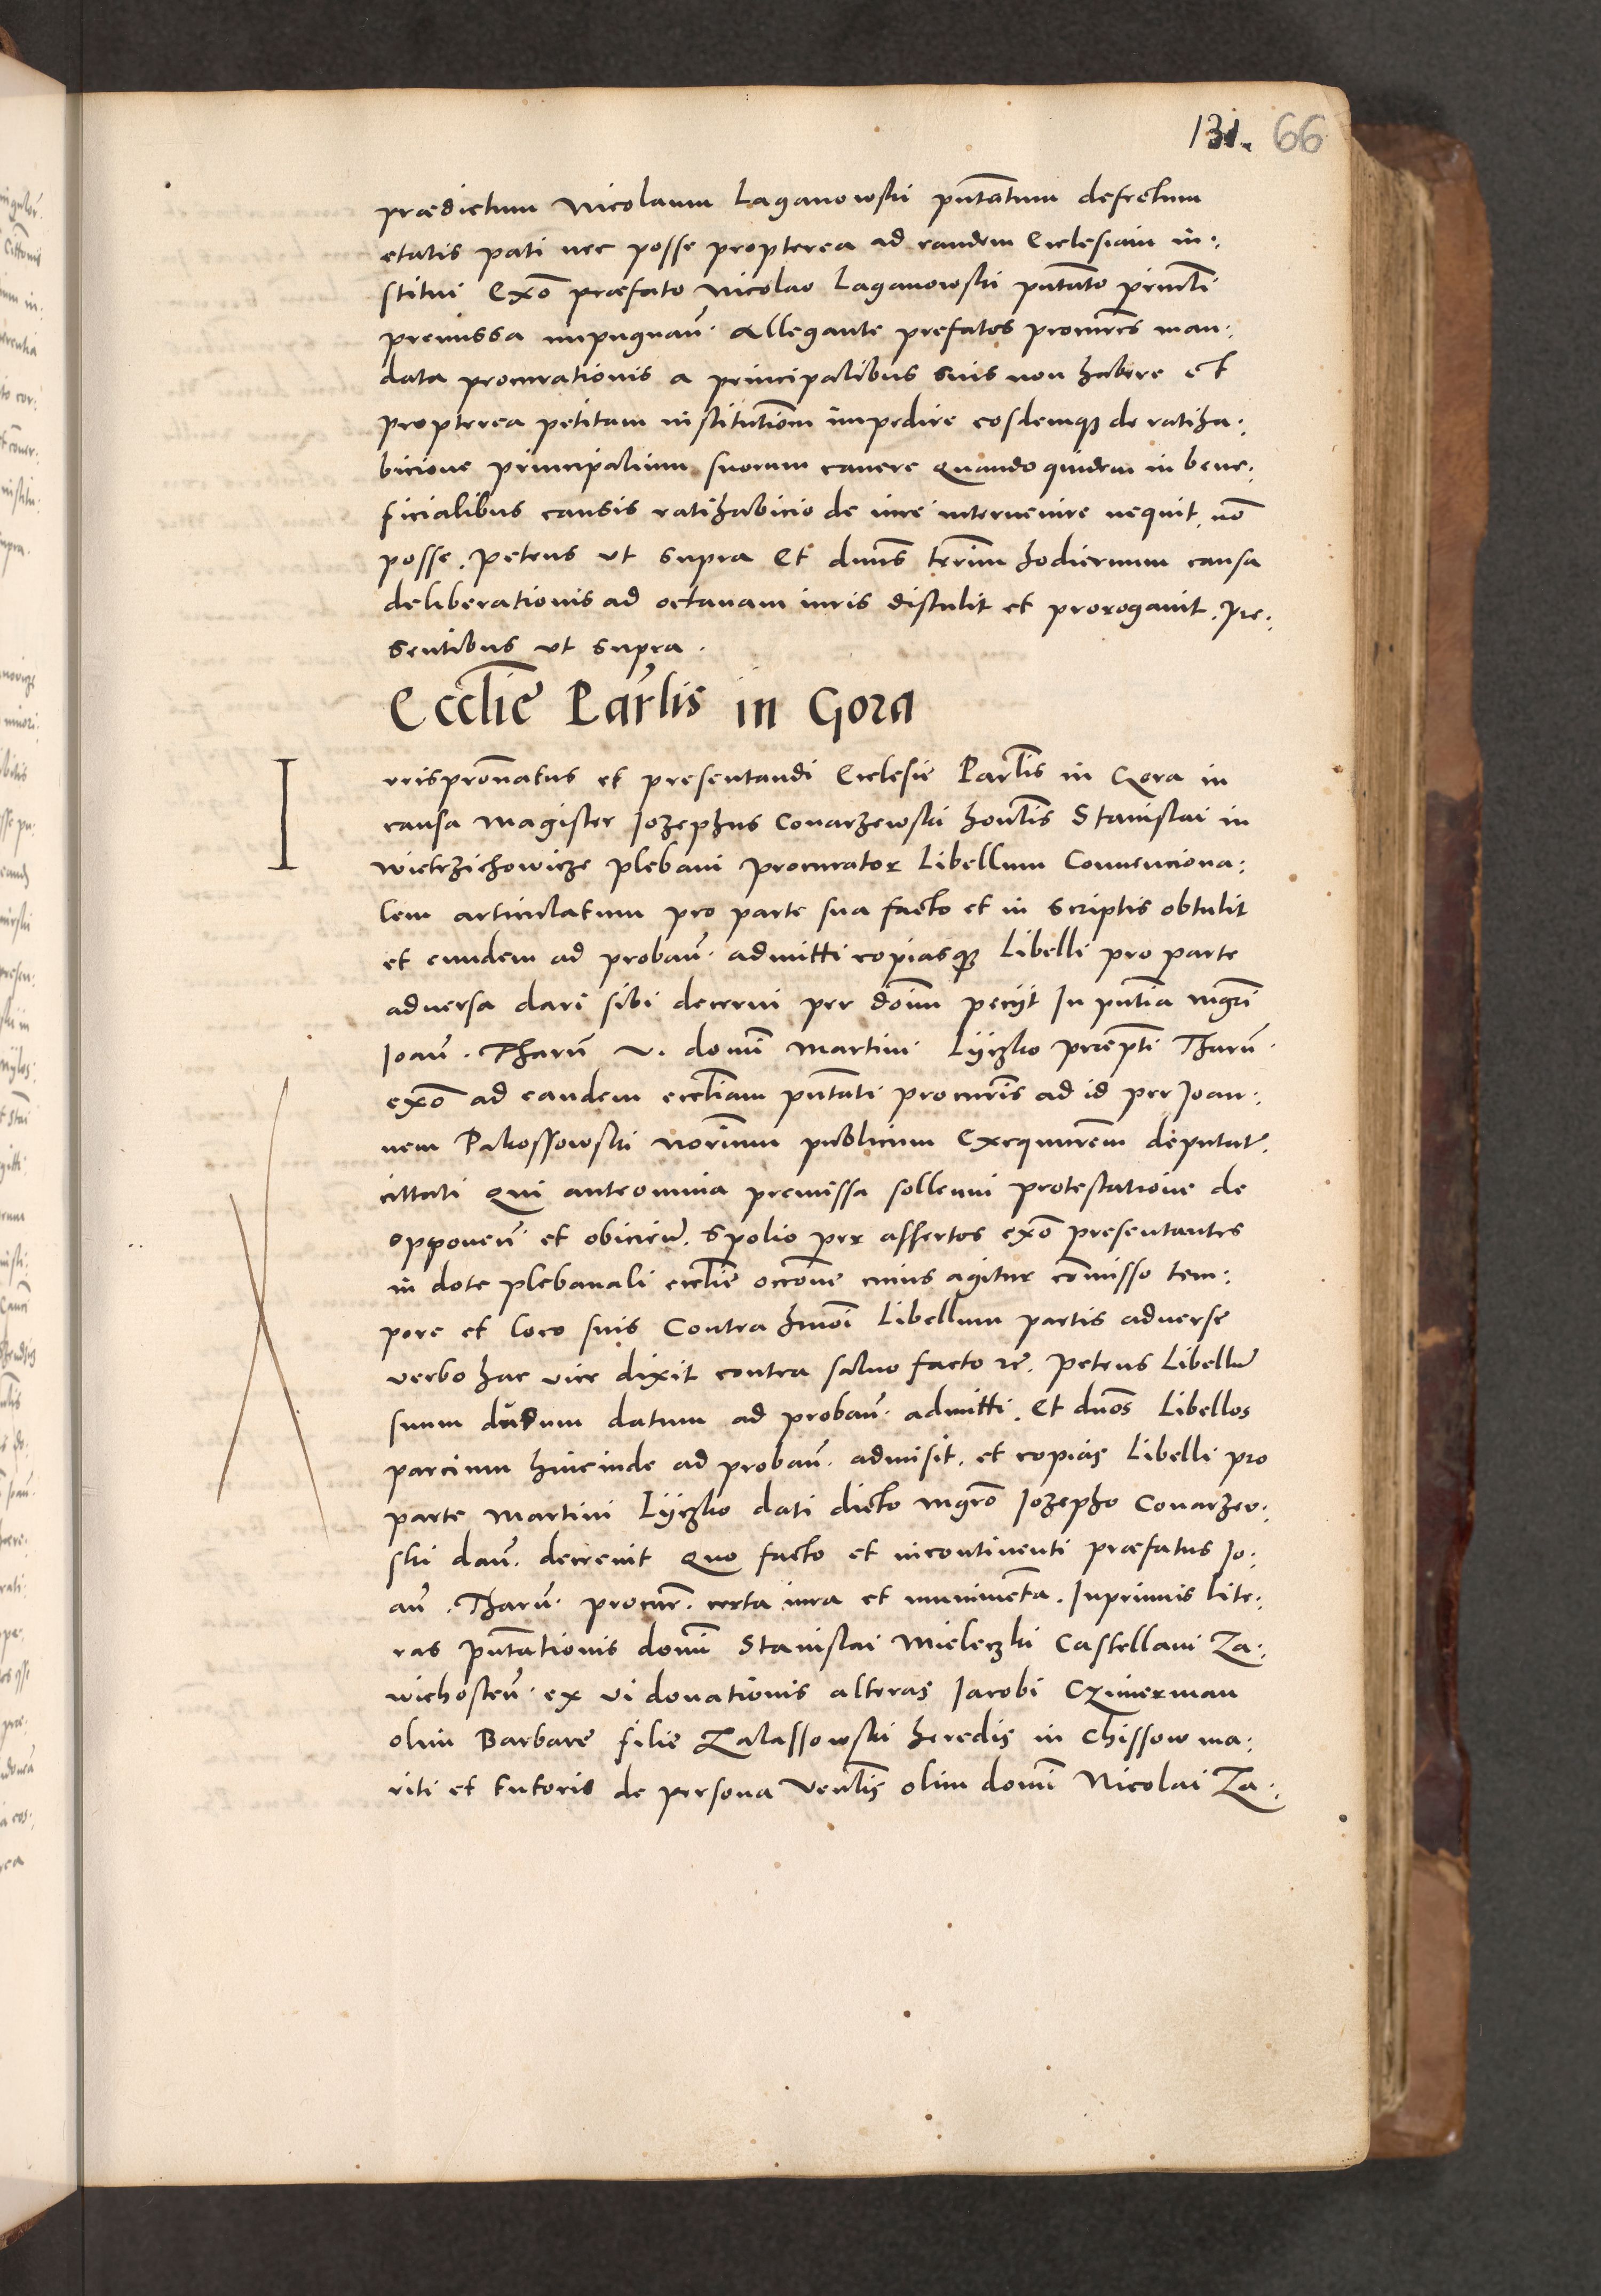 131. 66
prædictum Nicolaum Laganowski pūtatum defectum
etatis pati nec posse propterea ad eandem Ecclesiam in:
stitui Exō præfato Nicolao Laganowski pūtato princli
premissa impugnan̄. Allegante prefatos procuṙes man:
data procurationis a principalibus suis non habere et
propterea petitam institutiōm impedire eosdemqz de ratiha:
bicione principalium suorum cavere Quando quidem in bene:
ficialibus causis ratihabicio de iure intervenire nequit, nō
posse. Petens ut supra Et dnūs term̄ hodiernum causa
deliberationis ad octavam iuris distulit et prorogavit. Pre:
sentibus ut supra.
Eccl̄ie Par̄lis in Gora
I urisprōnatus et presentandi Ecclesie Partl̄is in Gora in
causa Magister Iozephus Conarzewski honl̄is Stanislai in
Wietrzichowicze plebani procurator Libellum Convenciona:
lem articulatum pro parte sua facto et in scriptis obtulit
et eundem ad proban̄. admitti copiasqz Libelli pro parte
adversa dari sibi decerni per dōm̄ peciit In pn̄tia mgrī
Ioan̄. Tharn̄ V. domī Martini Lyczko præptī Tharn̄.
exō ad eandem eccl̄iam pūtati procur̄is ad id per Ioan:
nem Pakossowski notrium publicum Exequutrem deputat̄.
cittati Qui anteomnia premissa sollenni protestatione de
opponen̄. et obicien̄. spolio per assertos exō presentantes
in dote plebanali eccl̄ie occōne cuius agitur cōmisso tem:
pore et loco suis Contra hmōi Libellum partis adverse
verbo hac vice dixit contra salvo facto re. Petens Libellū
suum dudum datum ad proban̄. admitti. Et dnōs Libellos
parcium hincinde ad proban̄. admisit. et copias Libelli pro
parte Martini Lyczko dati dicto mgrō Iozepho Conarzew:
ski dan̄. decrevit Quo facto et incontinenti præfatus Io:
an̄. Tharn̄. procur̄. certa iura et munimenta. Inprimis lite:
ras pūtationis domī Stanislai Mieleczki Castellani Za:
wichosten̄. ex vi donationis alteras Iacobi Czimerman
olim Barbare filie Zalassowski heredis in Chissow ma:
riti et tutoris de persona Venl̄is olim domī Nicolai Za: